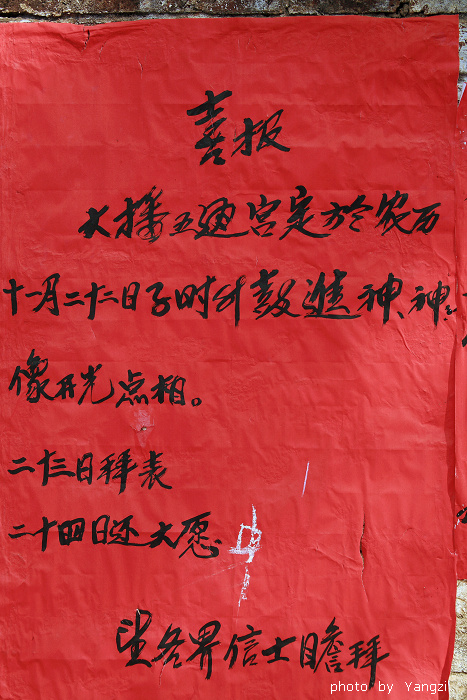 喜报
大播五通宫定於农历
十一月二十二日子时升鼓進神、神
像开光点相。
二十三日拜表
二十四日还大愿
望各界信士瞻拜
photo by Yangzi